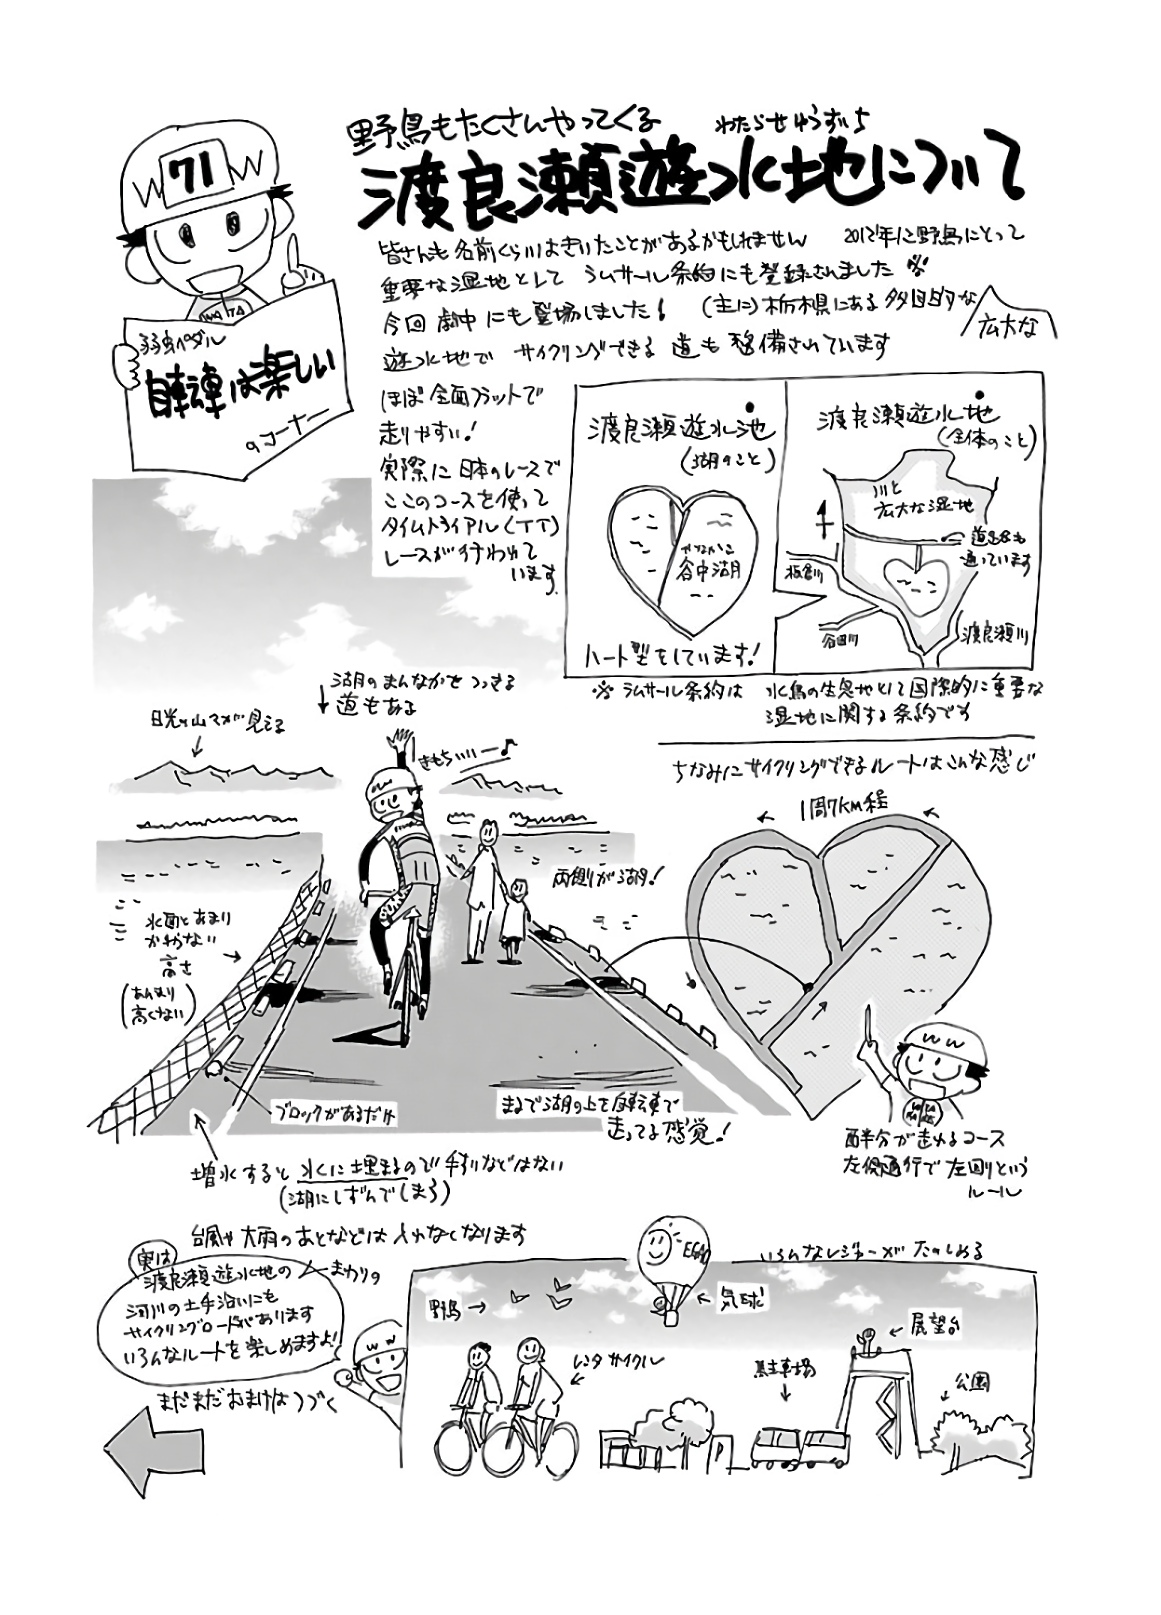 71
W W
WA TA
弱虫ペダル
自転車は楽しい
のコーナー
野鳥もたくさんやってくる
わたらせゆうすいち
渡良瀬遊水地について
皆さんも名前くらいはきいたことがあるかもしれません 2012年に野鳥にとって
重要な湿地として ラムサール条約にも登録されました※
今回 劇中にも登場しました! (主に)栃木県にある多目的な
広大な
遊水地で サイクリングできる 道も整備されています
ほぼ全面フラットで
走りやすい!
実際に日本のレースで
ここのコースを使って
タイムトライアル(TT)
レースが行われて
います
渡良瀬遊水池
(湖のこと)
やなかこ
谷中湖
ハート型をしています!
渡良瀬遊水地
(全体のこと)
川と
広大な湿地
道路も
通っています
板倉川
谷田川
渡良瀬川
※ラムサール条約は 水鳥の生息地として国際的に重要な
湿地に関する条約です
湖のまんなかをつっきる
道もある
日光の山々が見える
きもちいいー♪
両側が湖!
水面とあまり
かわらない
高さ
(あんまり
高くない)
ブロックがあるだけ
まるで湖の上を自転車で
走ってる感覚!
増水すると 水に埋まるので手すりなどはない
(湖にしずんでしまう)
台風や大雨のあとなどは入れなくなります
ちなみにサイクリングできるルートはこんな感じ
1周7KM程
W W
WA TA
西半分が走れるコース
左側通行で左回りという
ルール
実は
渡良瀬遊水地のまわりの
河川の土手沿いにも
サイクリングロードがあります
いろんなルートを楽しめますよ!
W W
まだまだおまけはつづく
いろんなレジャーがたのしめる
野鳥
気球
レンタサイクル
駐車場
展望台
公園